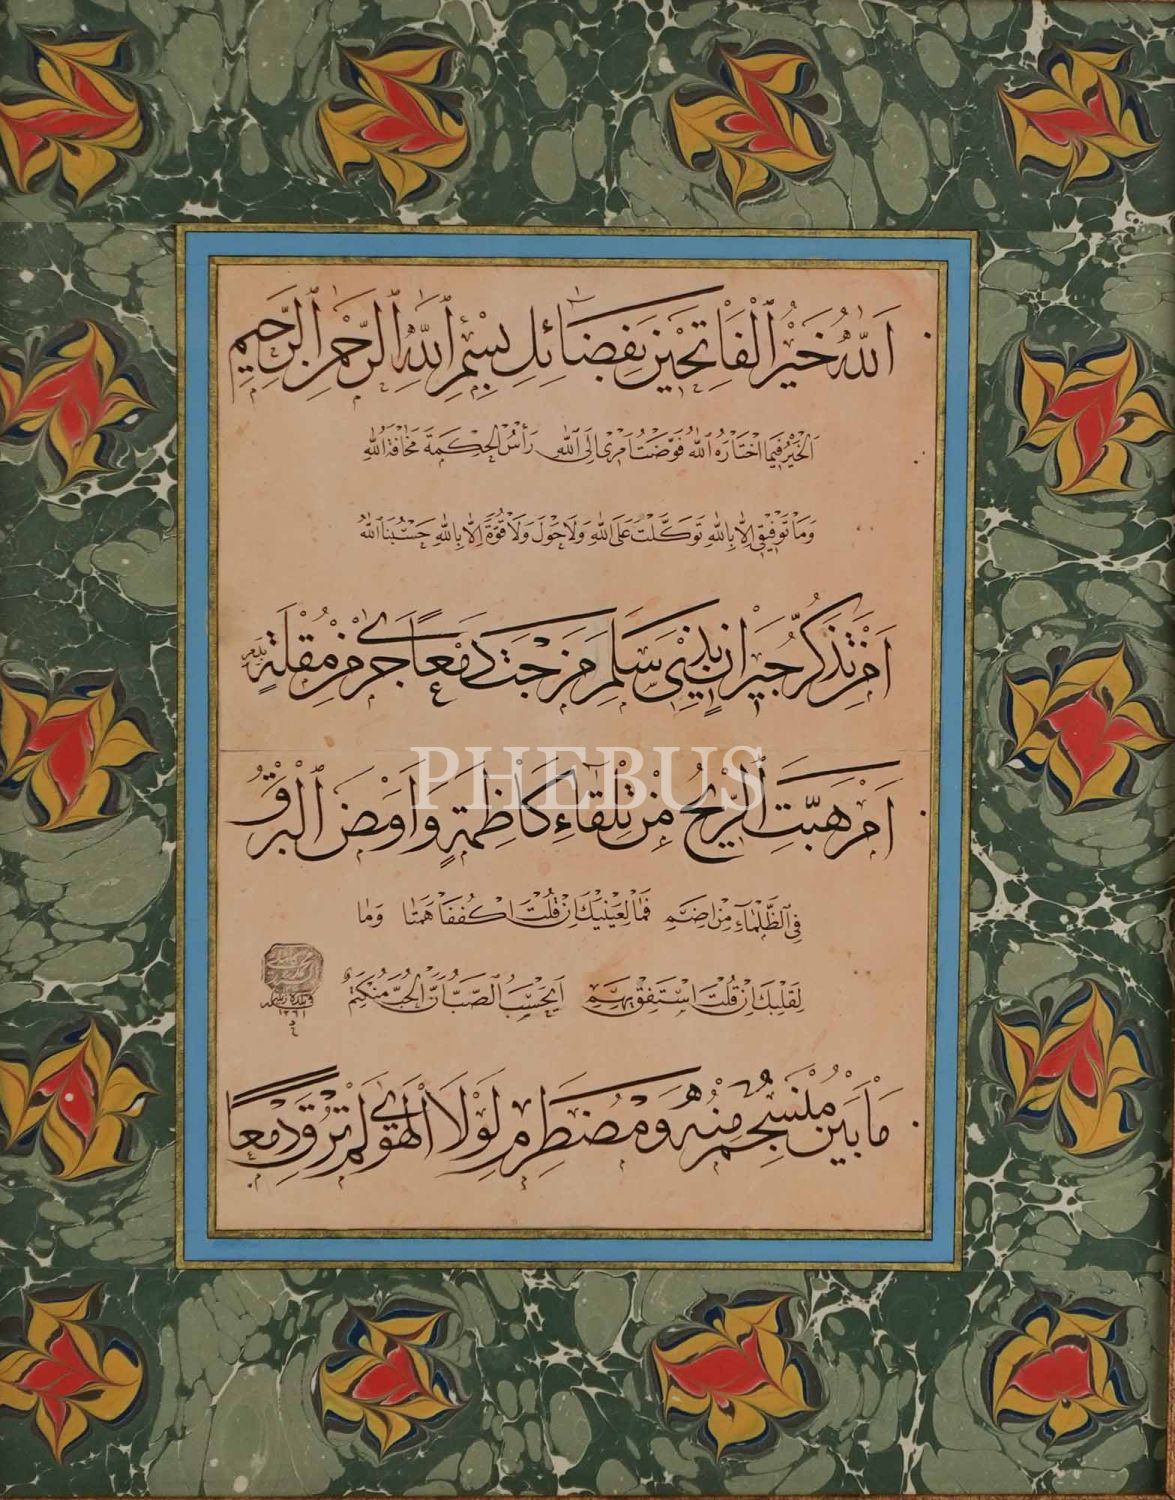 اَللّٰهُ خَيْرُ الْفَاتِحَيْنِ بِفَضَائِلِ بِسْمِ اللّٰهِ الرَّحْمٰنِ الرَّحِيمِ
اَلْخَيْرُ فِيمَا اخْتَارَهُ اللّٰهُ فَوَّضْتُ اَمْرِى اِلَى اللّٰهِ رَأْسُ الْحِكْمَةِ مَخَافَةُ اللّٰهِ
وَمَا تَوْفِيقِى اِلَّا بِاللّٰهِ تَوَكَّلْتُ عَلَى اللّٰهِ وَلَا حَوْلَ وَلَا قُوَّةَ اِلَّا بِاللّٰهِ حَسْبُنَا اللّٰهُ
اَمِنْ تَذَكُّرِ جِيرَانٍ بِذِى سَلَمِ مَزَجْتَ دَمْعًا جَرٰى مِنْ مُقْلَةٍ بِدَمِ
اَمْ هَبَّتِ الرِّيحُ مِنْ تِلْقَاءِ كَاظِمَةٍ وَاَوْمَضَ الْبَرْقُ
فِى الظَّلْمَاءِ مِنْ اِضَمِ فَمَا لِعَيْنَيْكَ اِنْ قُلْتَ اكْفُفَا هَمَتَا وَمَا
لِقَلْبِكَ اِنْ قُلْتَ اسْتَفِقْ يَهِمِ اَيَحْسَبُ الصَّبُّ اَنَّ الْحُبَّ مُنْكَتِمٌ
مَا بَيْنَ مُنْسَجِمٍ مِنْهُ وَمُضْطَرِمِ لَوْلَا الْهَوٰى لَمْ تُرِقْ دَمْعًا
PHEBUS